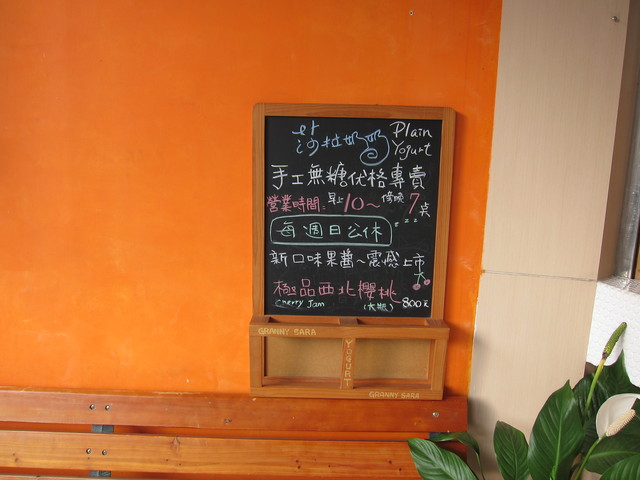 沙拉奶奶 Plain Yogurt
手工無糖優格專賣
營業時間: 早上10~傍晚7點
每週日公休
新口味果醬~震撼上市
極品西北櫻桃
Cherry Jam (大瓶) 800元
GRANNY SARA
YOGURT
GRANNY SARA